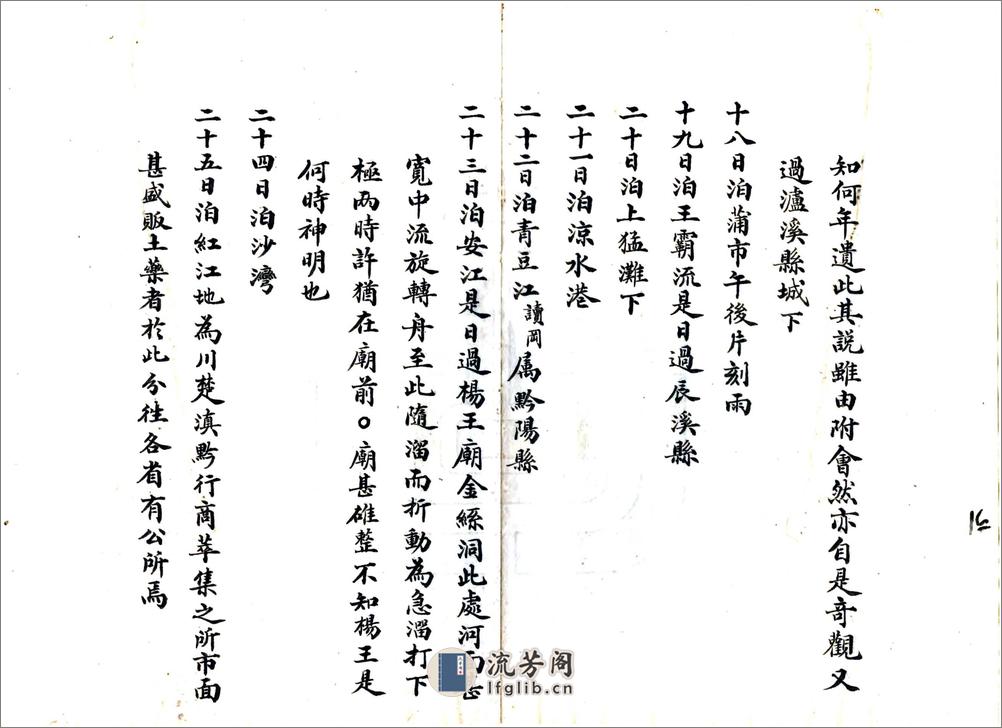 知何年遺此其説雖由附會然亦自是奇觀又
過瀘溪縣城下
十八日泊蒲市午後片刻雨
十九日泊王霸流是日過辰溪縣
二十日泊上猛灘下
二十一日泊涼水港
二十二日泊青豆江讀岡属黔陽縣
二十三日泊安江是日過楊王廟金絲洞此處河面
寬中流旋轉舟至此隨溜而折動為急溜打下
極两時許猶在廟前。廟甚雄整不知楊王是
何時神明也
二十四日泊沙灣
二十五日泊紅江地為川楚滇黔行商萃集之所市面
甚盛販土藥者於此分往各省有公所焉
流芳阁
lfglib.cn